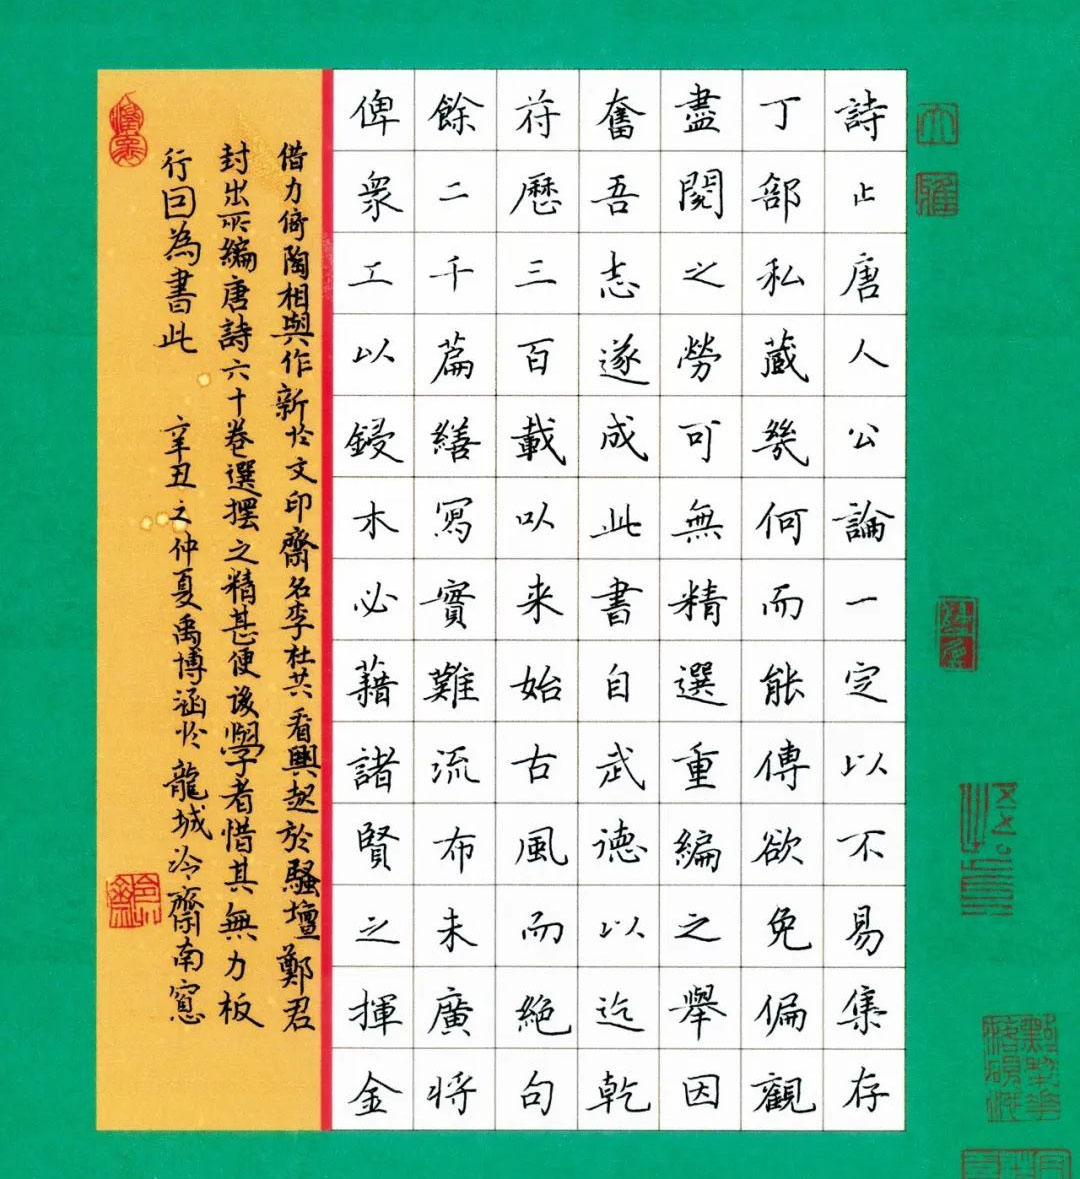 詩止唐人公論一定以不易集存
丁部私藏幾何而能傳欲免偏觀
盡閱之勞可無精選重編之舉因
奮吾志遂成此書自武德以迄乾
符歷三百載以来始古風而絕句
餘二千篇繕寫實難流布未廣將
俾衆工以鋟木必藉諸賢之揮金
借力倚陶相與作新於文印齋名李杜共看興起於騷壇鄭君
封出所編唐詩六十卷選擇之精甚便後學者惜其無力板
行因為書此 辛丑之仲夏禹博涵於龍城冷齋南窗